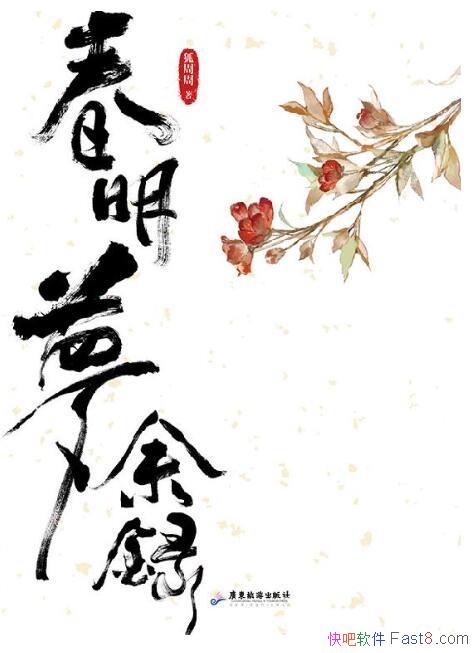 春明夢余録
狐周周 著
廣東旅游出版社
快吧软件 Fast8.com